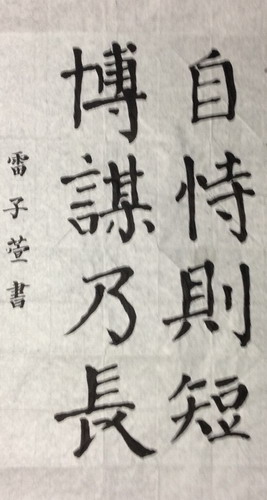 自恃則短
博謀乃長
雷子萱書